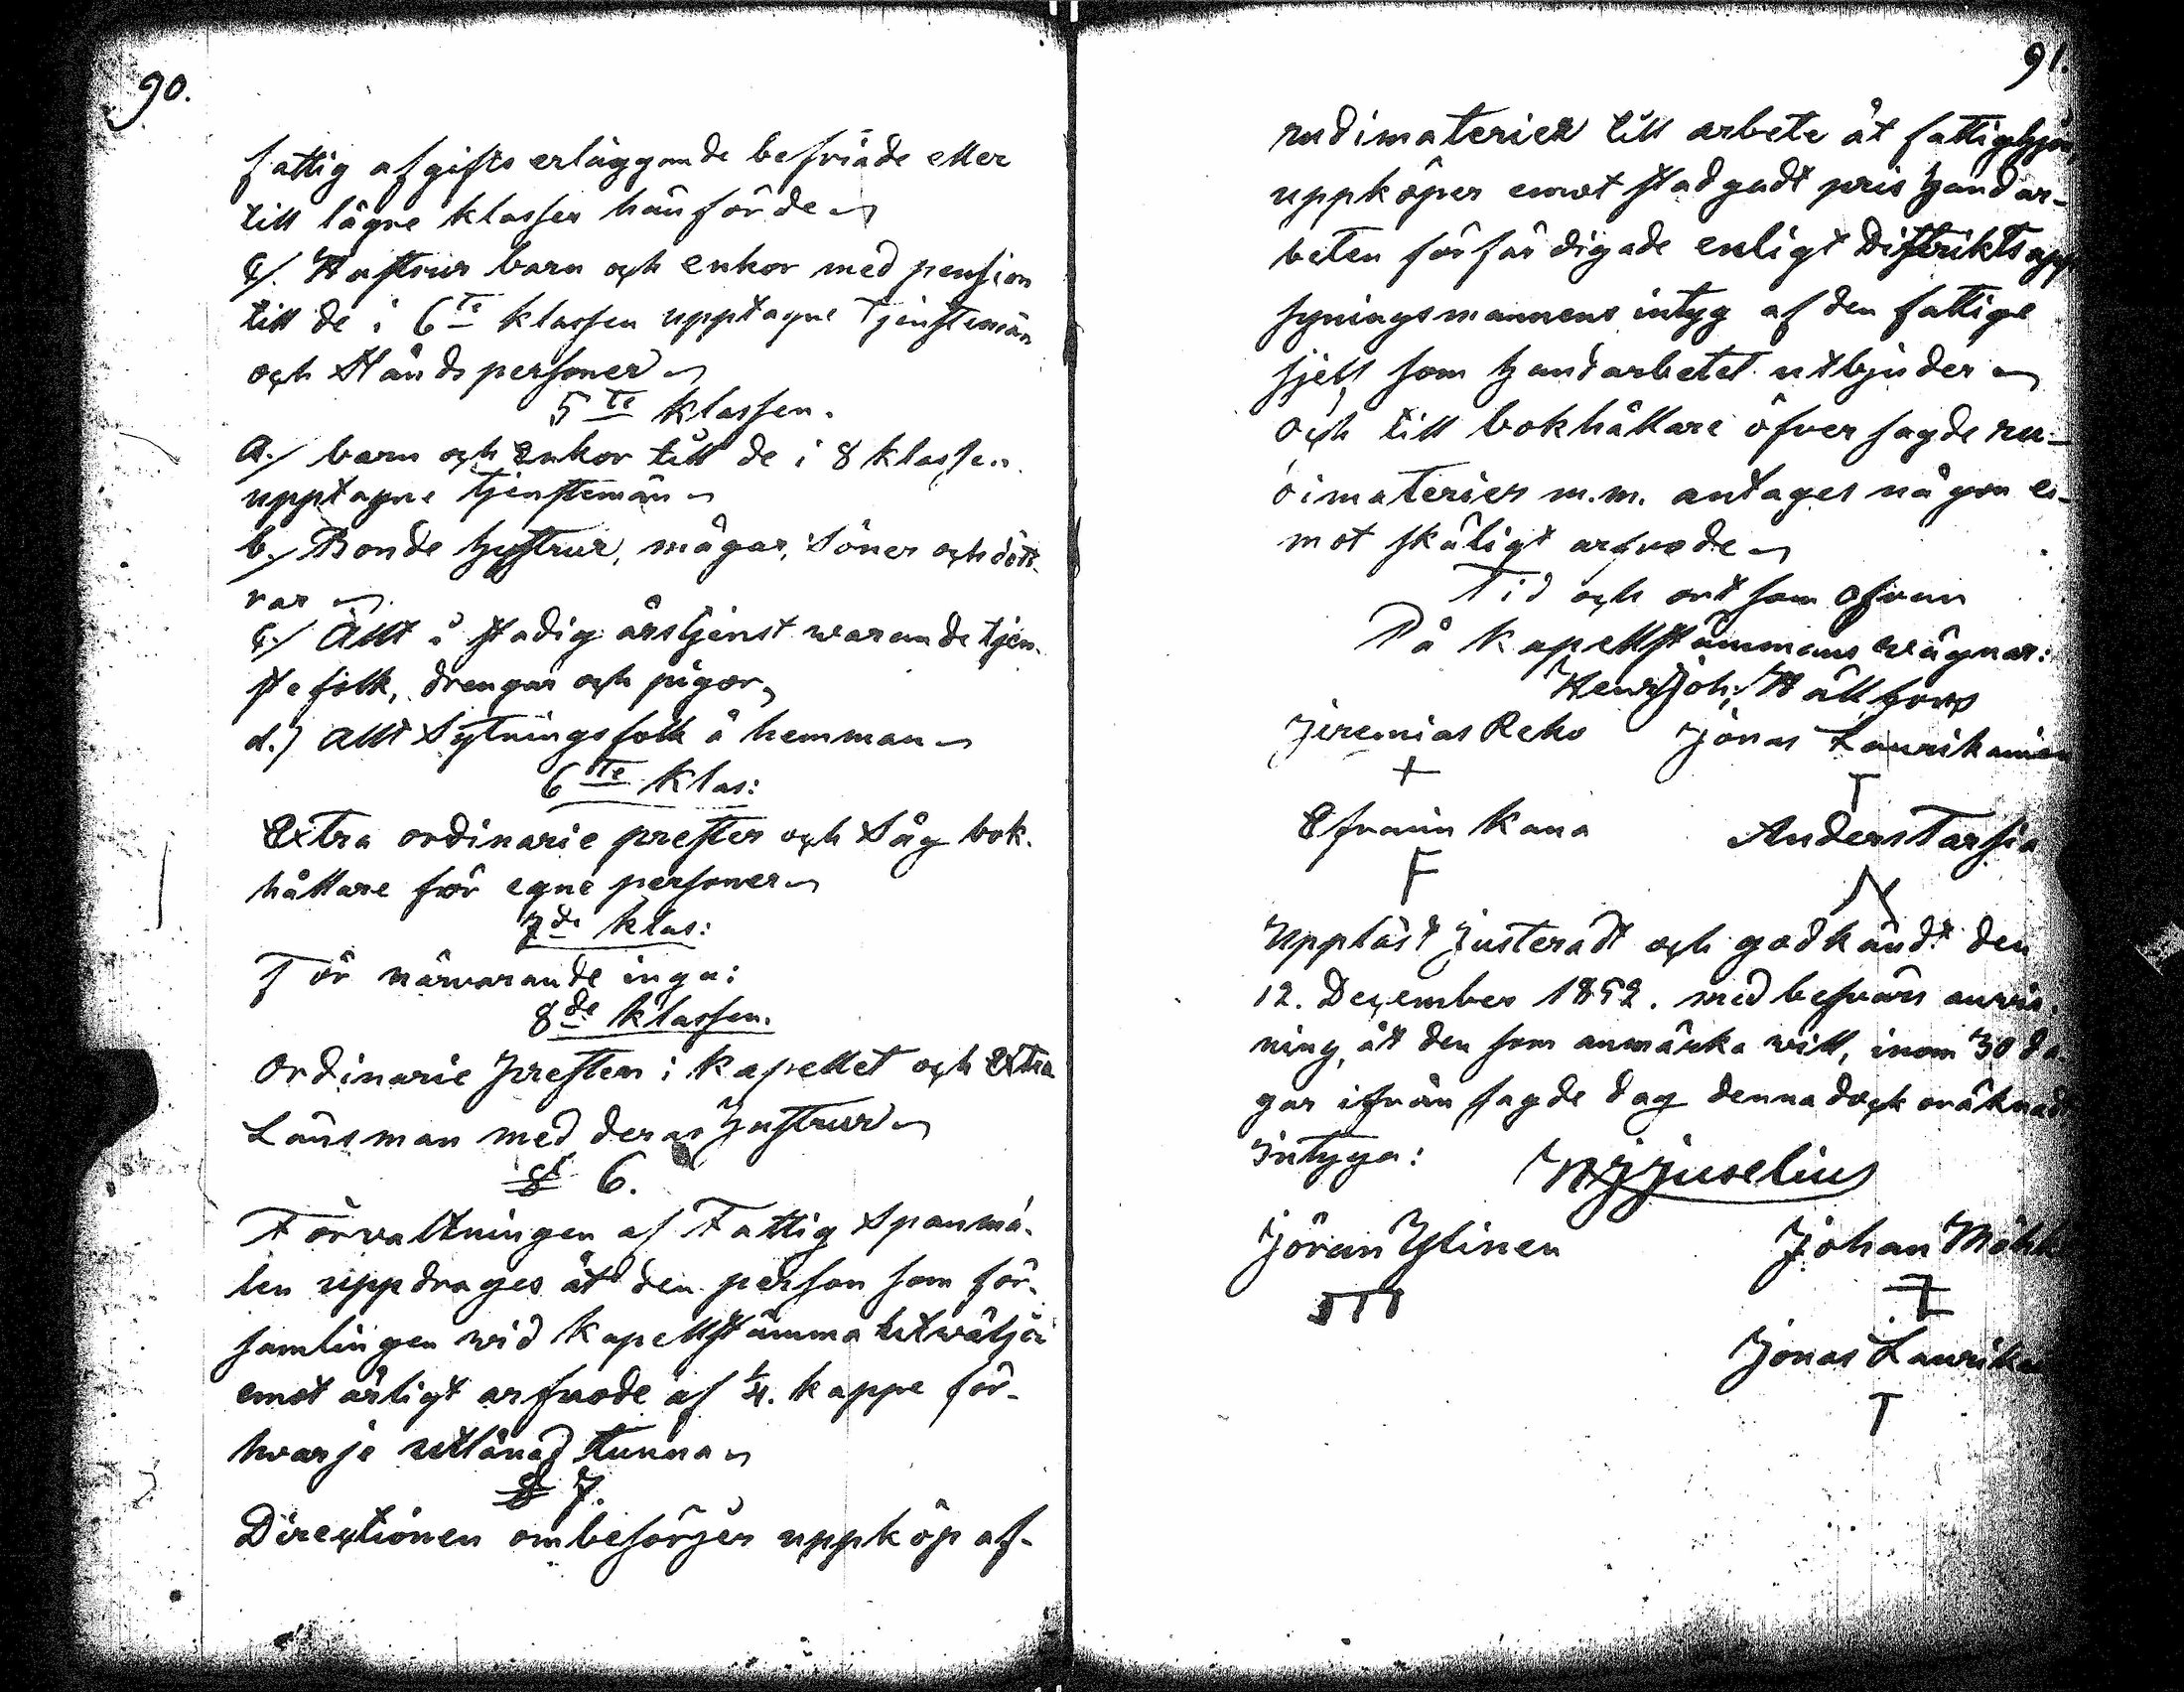 90.
fattig afgifts erläggande befriade eller
till lägre klasser hänförde
c/. Hustrur barn och enkor med pension
till de i 6te klassen upptagne Tjenstemän
och Ståndspersoner
5te klassen.
a./ barn och Enkor till de i 8 klassen
upptagne tjenstemän
b./ Bonde hustrur, mågar, Söner och dött-
rar
c./ Allt i stadig årstjenst warande tjen-
stefolk, drengar och pigor,
d.) allt Sytningsfolk å hemman
6te klas:
Extra ordinarie prester och Såg bok-
hållare för egne personer
7de klas:
För närwarande inga:
8de klassen.
Ordinarie Presten i kapellet och Extra
Länsman med deras Hustrur
§ 6.
Förvaltningen af Fattig Spanmå-
len uppdrages åt den person som för-
samlingen wid kapellstämma utwäljer
emot årligt arfvode af 1/4. kappe för-
hvarje utlånad tunna
§ 7.
Directionen ombesörjer uppköp af-
91.
rudimaterier till arbete åt fattighjon
uppköper emot stadgadt pris handar-
beten förfärdigade enligt Distrikts upp
syningsmannens intyg af den fattige
sjelf som handarbetet utbjuder
och till bokhållare öfver sagde ru-
dimaterier m.m. antages någon e-
mot skäligt arfvode
Tid och ort som ofvan
På kapellstämmans wägnar:
Henr Joh: Hällfors
Jeremias Reko Jonas Laurikainen
+ T
Efraim Kana Anders Tarsia
F N
Uppläst Justeradt och godkändt den
12. December 1852. med besvärs anvis-
ning, åt den som anmärka will, inom 30 da-
gar ifrån sagde dag denna dock oräknad
Intyga: Juselius
Jöran Ylinen Johan
Jonas
T